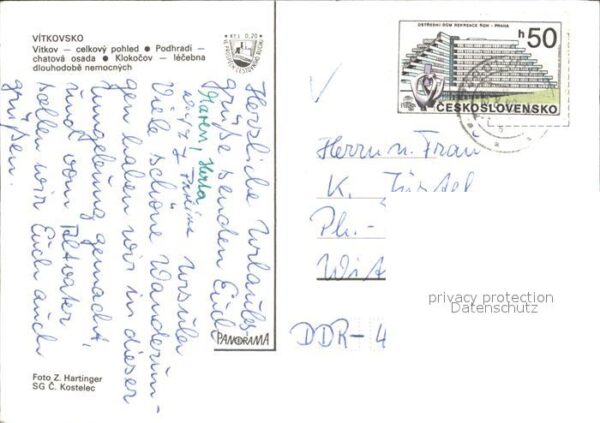 VÍTKOVSKO
Vítkov — celkový pohled ● Podhradí —
chatová osada ● Klokočov — léčebna
dlouhodobě nemocných
Kčs 0,20
Herzliche Urlaubs
grüße senden Euch
Maren, Herta
u. Familie Ursula
Viele schöne Wanderun-
gen haben wir in dieser
Umgebung gemacht,
und vom Altvater
sollen wir Euch auch
grüßen.
PANORAMA
Foto Z. Hartinger
SG Č. Kostelec
OSTŘEDNÍ DŮM REKREACE ROH - PRAHA
h 50
ČESKOSLOVENSKO
Herrn u. Frau
K.
Ph.-
Wit
DDR-4
privacy protection
Datenschutz